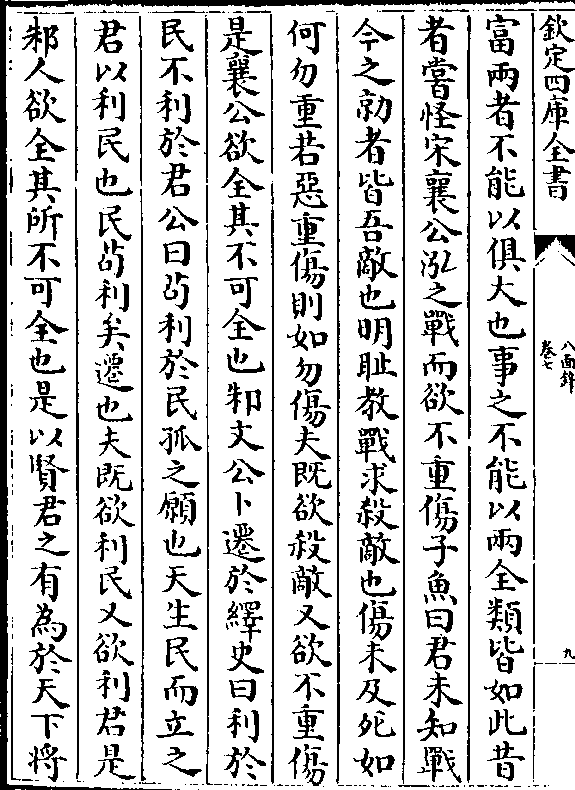 欽定四庫全書
八面鋒
卷七
九
富兩者不能以俱大也事之不能以兩全類皆如此昔
者嘗怪宋襄公泓之戰而欲不重傷子魚曰君未知戰
今之勍者皆吾敵也明耻教戰求殺敵也傷未及死如
何勿重若惡重傷則如勿傷夫既欲殺敵又欲不重傷
是襄公欲全其不可全也邾文公卜遷於繹史曰利於
民不利於君公曰茍利於民孤之願也天生民而立之
君以利民也民茍利矣遷也夫既欲利民又欲利君是
邾人欲全其所不可全也是以賢君之有為於天下将